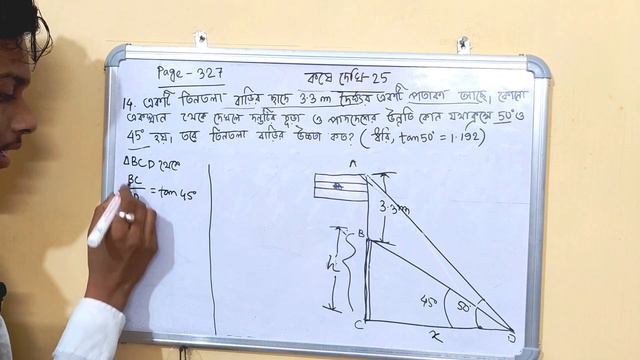 Page - 327
কষে দেখি-25
14. একটি তিনতলা বাড়ির ছাদে 3.3 m দৈর্ঘ্যের একটি পাতাকা আছে। কোনো
একস্থান থেকে দেখলে দন্ডটির চূড়া ও পাদদেশের উন্নতি কোন যথাক্রমে 50° ও
45° হয়, তবে তিনতলা বাড়ির উচ্চতা কত? (ধরি, tan 50° = 1.192)
ΔBCD থেকে
BC
= tan 45°
A
3.3m
B
h
45°
50°
C
x
D